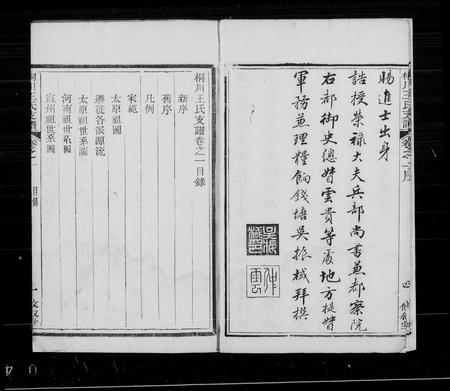 桐川王氏支譜 卷之一序
賜進士出身
誥授榮祿大夫兵部尚書兼都察院
右都御史總督雲貴等處地方提督
軍務兼理糧餉錢塘吳振棫拜撰
吳振棫印
仲雲
四
桐川王氏支譜卷之一目錄
新序
舊序
凡例
家範
太原祖圖
遷徙各派源流
太原祖世系圖
河南祖世系圖
宣州祖世系圖
桐川王氏支譜 卷之一 目錄
一